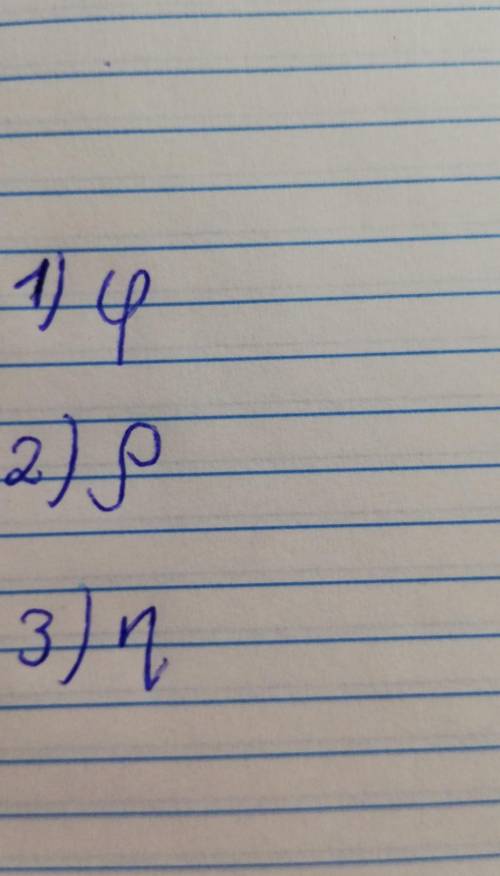 1) φ
2) ρ
3) η